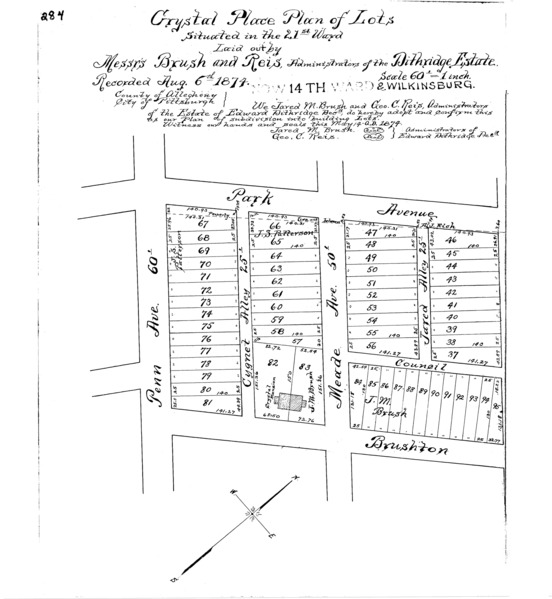 284
Crystal Place Plan of Lots
Situated in the 21st Ward
Laid out by
Messrs Brush and Reis, Administrators of the Dithridge Estate.
Recorded Aug. 6th 1874.
Scale 60 ft = 1 inch.
NOW 14TH WARD & WILKINSBURG.
County of Allegheny
City of Pittsburgh
We Jared M. Brush and Geo. C. Reis, Administrators
of the Estate of Edward Dithridge Decd. do hereby adopt and confirm this
as our Plan of subdivision into building lots.
Witness our hands and seals this May 14 A.D. 1874.
Jared M. Brush Seal } Administrators of
Geo. C. Reis. Seal } Edward Dithridge Decd
Park Avenue
Penn Ave. 60 ft
67
68
69
70
71
72
73
74
75
76
77
78
79
80 140
81
141.27
Patterson
Cygnet Alley 25 ft
66
J. S. Patterson
65 140
64
63
62
61
60
59
58 140
57
82
83
Crystal
150
J. M. Brush
68.50
72.76
Meade Ave. 50 ft
47 140
48
49
50
51
52
53
54
55 140
56
141.27
Jared Alley 25 ft
46
45
44
43
42
41
40
39
38 140
37
141.27
Council
84 85 86 87 88 89 90 91 92 93
J. M.
Brush
Brushton
N
E
S